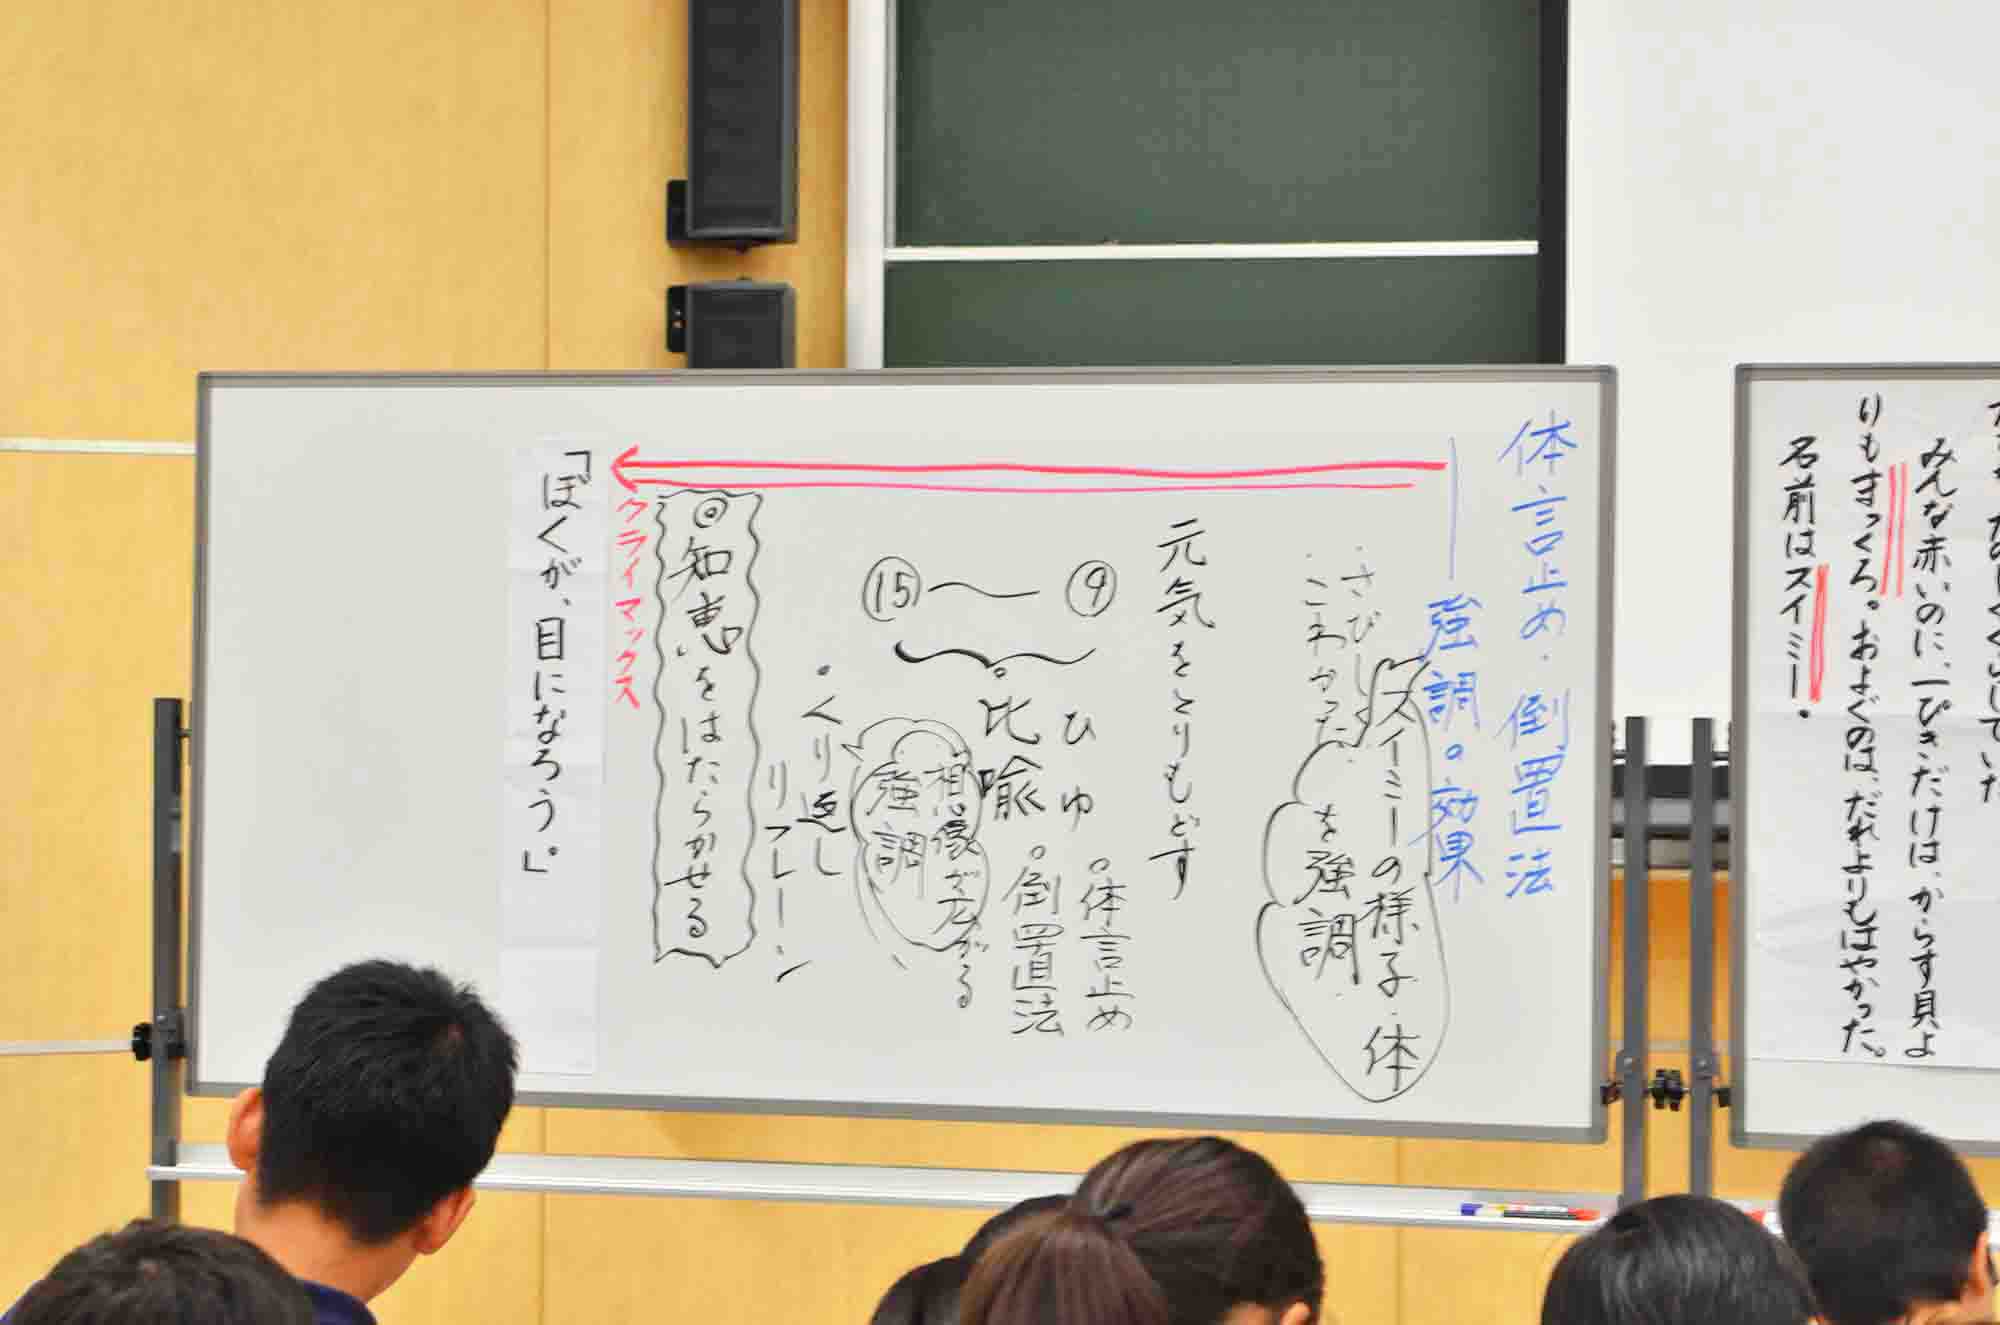 みんな赤いのに、一ぴきだけは、からす貝よ
りもまっくろ。およぐのは、だれよりもはやかった。
名前はスイミー。
体言止め・倒置法
強調。効果
スイミーの様子・体
を強調
・さびしい
・こわかった
元気をとりもどす
⑨〜⑮
ひゆ
。比喩
。体言止め
。倒置法
想像が広がる
強調
・くり返し
リフレーン
◎知恵をはたらかせる
クライマックス
「ぼくが、目になろう。」